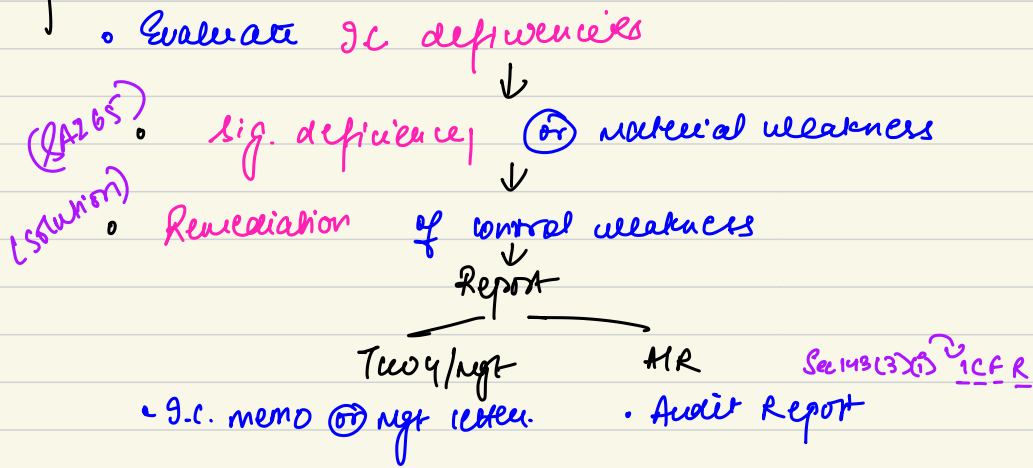 • Evaluate I.C deficiencies
(SA265) • Sig. deficiency (or) material weakness
(solution) • Remediation of control weakness
Report
TCWG/Mgt A/R Sec 143(3)(i) ICFR
• I.C. memo (or) Mgt letter. • Audit Report